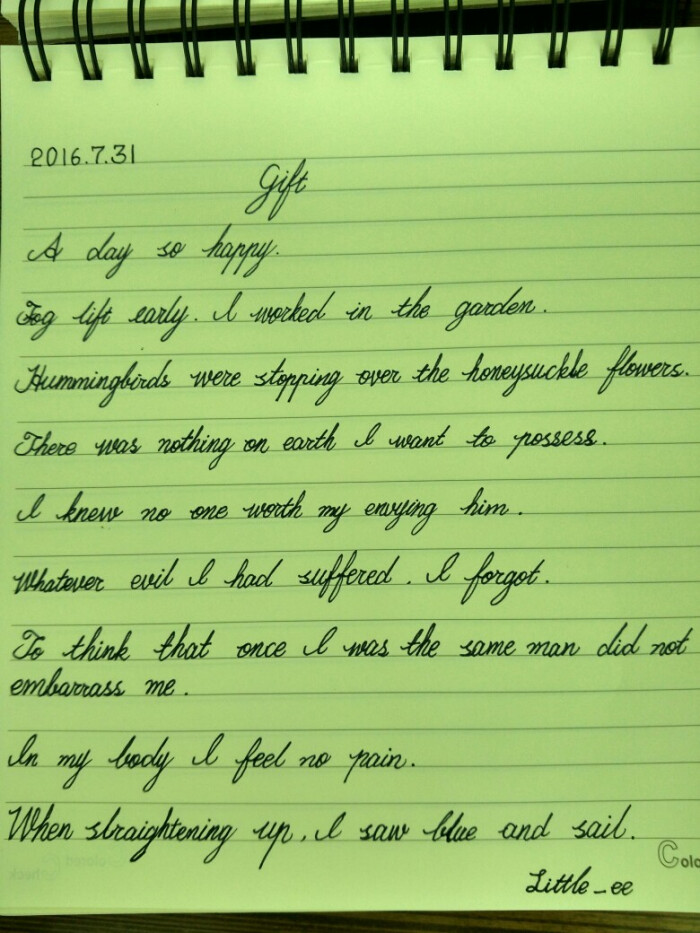 2016.7.31
Gift
A day so happy.
Fog lift early. I worked in the garden.
Hummingbirds were stopping over the honeysuckle flowers.
There was nothing on earth I want to possess.
I knew no one worth my envying him.
Whatever evil I had suffered. I forgot.
To think that once I was the same man did not
embarrass me.
In my body I feel no pain.
When straightening up, I saw blue and sail.
Colo
Little_ee